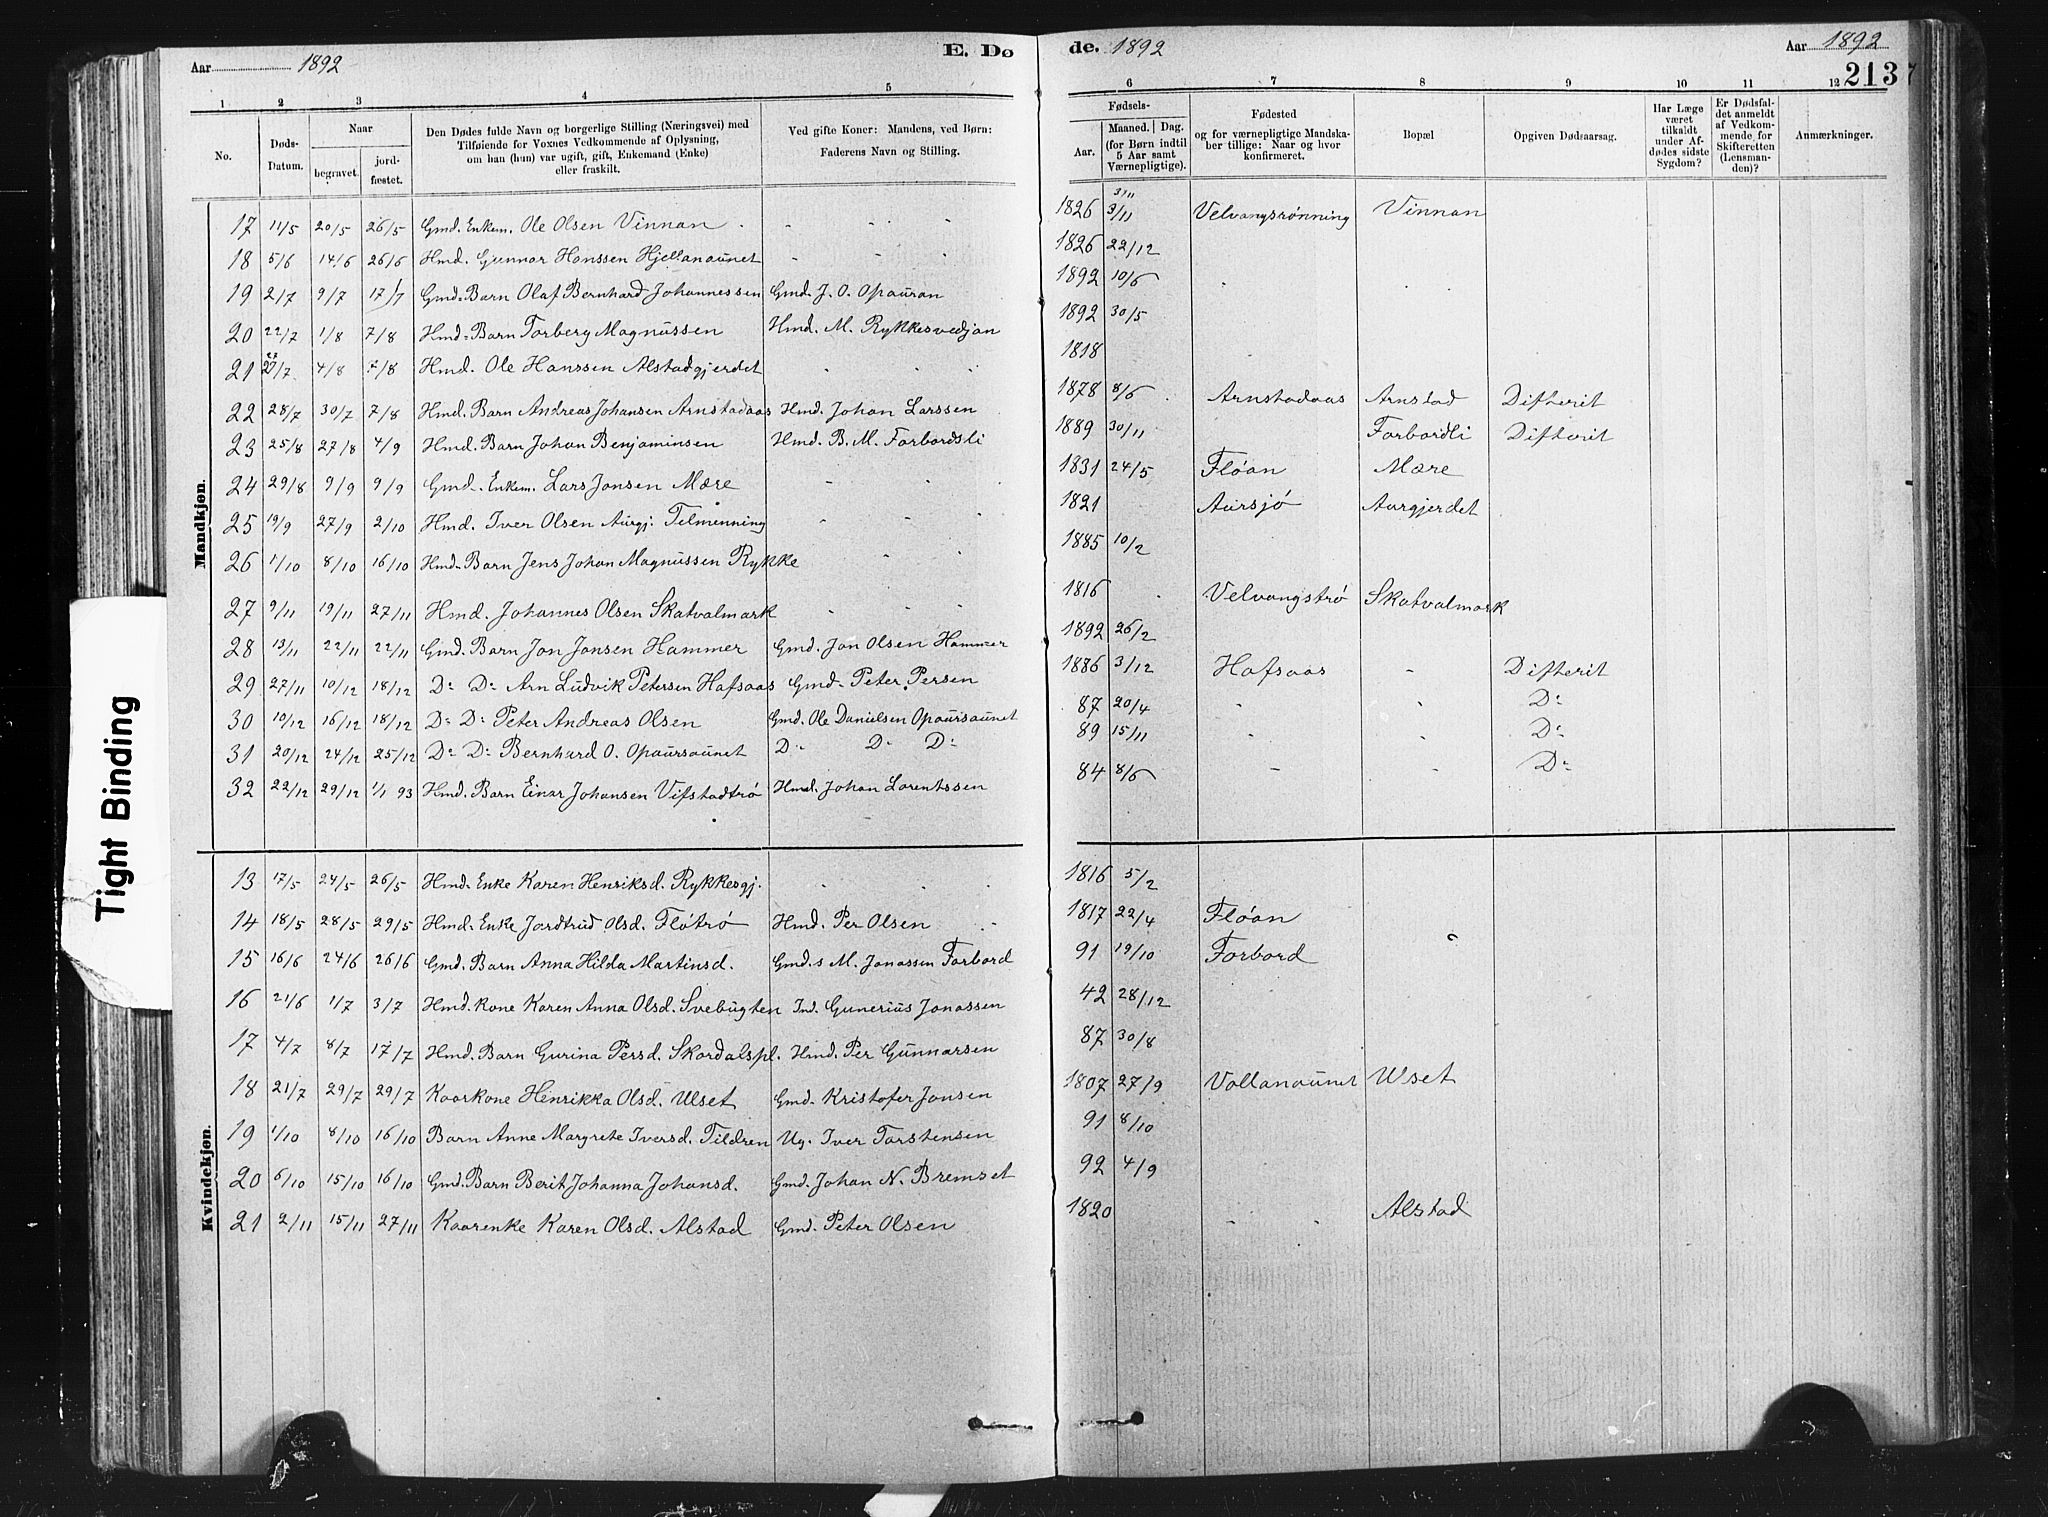 Aar 1892
E. Døde. 1892
Aar 1892
213
1 2 3 4 5 6 7 8 9 10 11 12
No.
Døds-Datum.
Naar
begravet.
jordfæstet.
Den Dødes fulde Navn og borgerlige Stilling (Næringsvei) med
Tilføiende for Voxnes Vedkommende af Oplysning,
om han (hun) var ugift, gift, Enkemand (Enke)
eller fraskilt.
Ved gifte Koner: Mandens, ved Børn:
Faderens Navn og Stilling.
Fødsels-
Aar. Maaned. Dag.
(for Børn indtil
5 Aar samt
Værnepligtige).
Fødested
og for værnepligtige Mandskaber tillige: Naar og hvor
konfirmeret.
Bopæl.
Opgiven Dødsaarsag.
Har Læge
været
tilkaldt
under Afdødes sidste
Sygdom?
Er Dødsfaldet anmeldt
af Vedkommende for
Skifteretten
(Lensmanden)?
Anmærkninger.
Mandkjøn.
17 11/5 20/5 26/5 Gmd. Enkem. Ole Olsen Vinnan - - - 1826 3/11 Velvangsrønning Vinnan
18 5/6 14/6 26/6 Hmd. Gunnar Hanssen Hjellanaunet - - - 1826 22/12
19 2/7 9/7 17/7 Gmd. Barn Olaf Bernhard Johannessen Gmd. J. O. Opauran 1892 10/6
20 22/7 1/8 7/8 Hmd. Barn Torberg Magnussen Hmd. M. Rykkesvedjan 1892 30/5
21 27/7 4/8 7/8 Hmd. Ole Hanssen Alstadgjerdet 1818
22 28/7 30/7 7/8 Hmd. Barn Andreas Johansen Arnstadaas Hmd. Johan Larssen 1878 8/6 Arnstadaas Arnstad Difterit
23 25/8 27/8 4/9 Hmd. Barn Johan Benjaminsen Hmd. B. M. Forbordsli 1889 30/11 Forbordli Difterit
24 29/8 9/9 9/9 Gmd. Enkem. Lars Jonsen Mære 1831 24/5 Flóan Mære
25 19/9 27/9 2/10 Hmd. Iver Olsen Aurgj. Telmenning 1821 Aursjó Aurgjerdet
26 1/10 8/10 16/10 Hmd. Barn Jens Johan Magnussen Rykke 1885 10/2
27 9/11 19/11 27/11 Hmd. Johannes Olsen Skatvalmark 1816 Velvangstrø Skatvalmark
28 13/11 22/11 22/11 Gmd. Barn Jon Jonsen Hammer Gmd. Jon Olsen Hammer 1892 26/2
29 27/11 10/12 18/12 D: D: Arn Ludvik Petersen Hafsaas Gmd. Peter Persen 1886 3/12 Hafsaas - Difterit
30 10/12 16/12 18/12 D: D: Peter Andreas Olsen Gmd. Ole Danielsen Opaursaunet 87 20/4 D:
31 20/12 24/12 25/12 D: D: Bernhard O. Opaursaunet D: D: D: 89 15/11 D:
32 22/12 29/12 1/1 93 Hmd. Barn Einar Johansen Vifstadtrø Hmd. Johan Lorentssen 84 8/6 - - D:
Kvindekjøn.
13 17/5 24/5 26/5 Hmd. Enke Karen Henriksd. Rykkesgj. 1816 5/2
14 18/5 28/5 29/5 Hmd. Enke Jordtrud Olsd. Flótrø Hmd. Per Olsen 1817 22/4 Flóan
15 16/6 24/6 26/6 Gmd. Barn Anna Hilda Martinsd. Gmd.s M. Jonassen Forbord 91 19/10 Forbord
16 21/6 1/7 3/7 Hmd. Kone Karen Anna Olsd. Svebugten Ind. Gunerius Jonassen 42 28/12
17 4/7 8/7 17/7 Hmd. Barn Gurina Persd. Skordalspl. Hmd. Per Gunnarsen 87 30/8
18 21/7 29/7 29/7 Kaarkone Henrikka Olsd. Ulset Gmd. Kristofer Jonsen 1807 27/9 Vollanaunet Ulset
19 1/10 8/10 16/10 Barn Anne Margrete Iversd. Tildren Ug. Iver Torstensen 91 8/10
20 6/10 15/10 16/10 Gmd. Barn Berit Johanna Johansd. Gmd. Johan N. Bremset 92 4/9
21 2/11 15/11 27/11 Kaarenke Karen Olsd. Alstad Gmd. Peter Olsen 1820 - - Alstad
Tight Binding